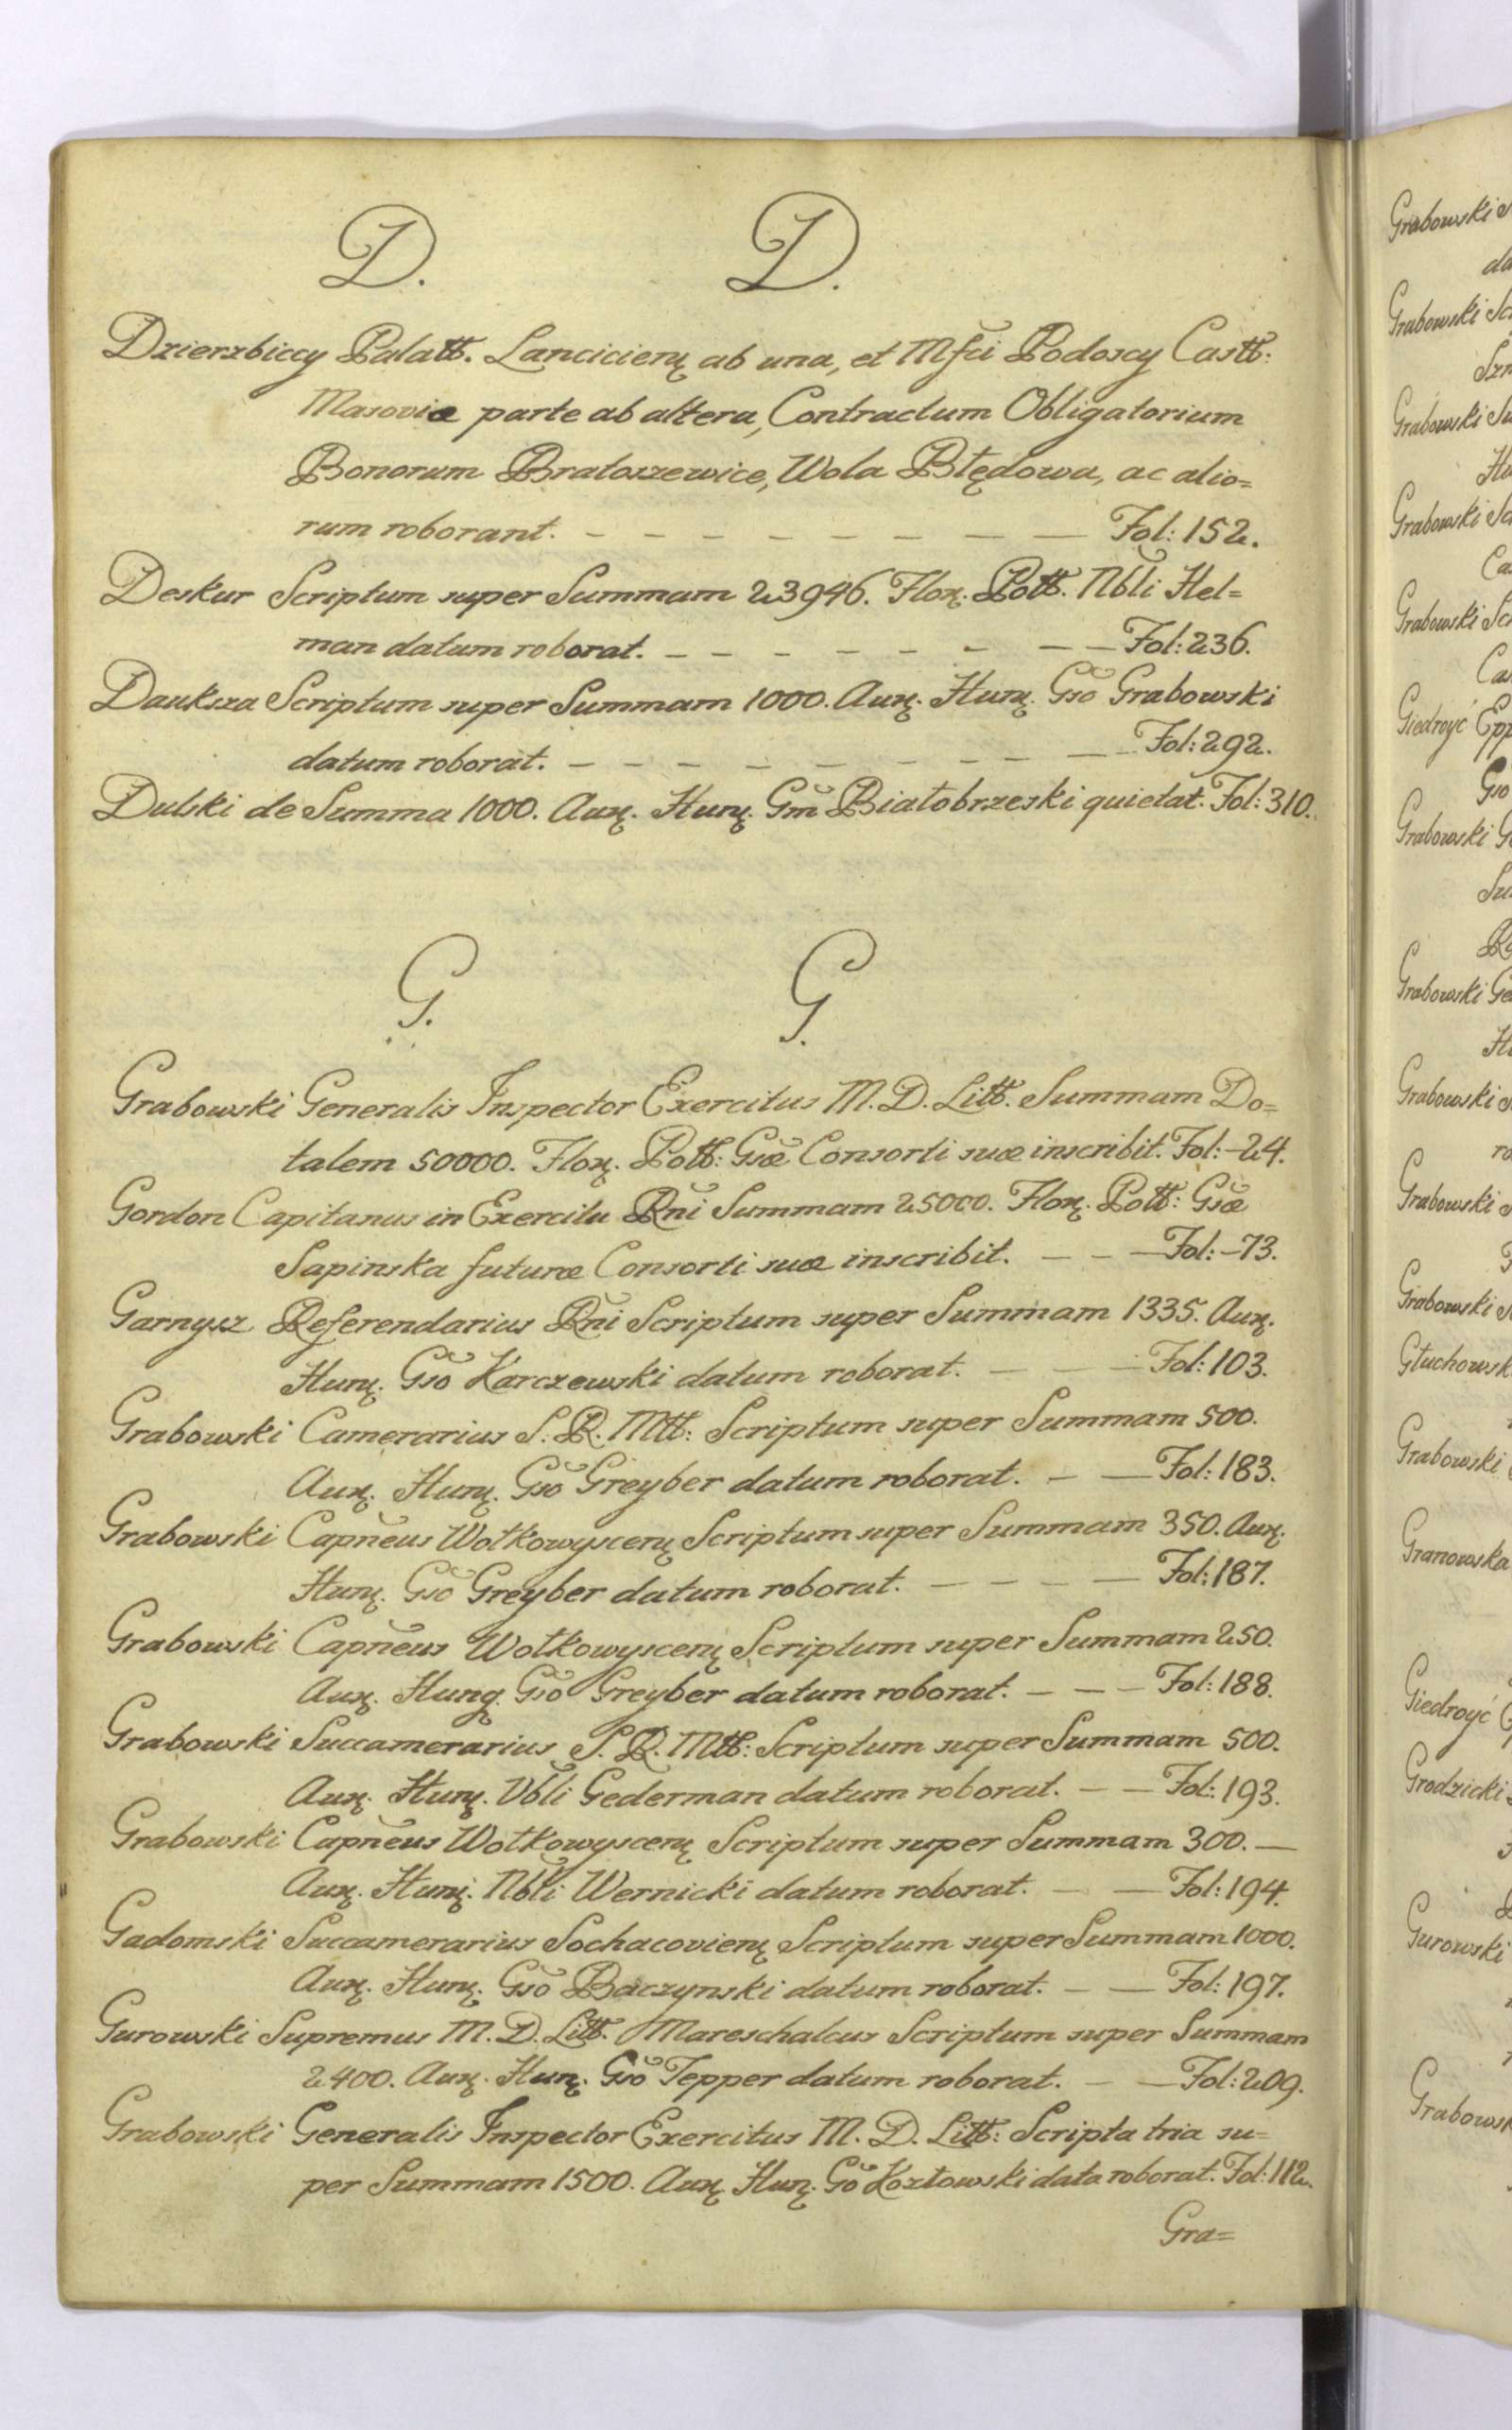 D. D.
Dzierzbiccy Palatt. Lancicien: ab una, et Mfci Podoscy Castt:
Masoviæ parte ab altera, Contractum Obligatorium
Bonorum Bratoszewice, Wola Błędowa, ac alio=
rum roborant. – – – – – – – – – Fol: 152.
Deskur Scriptum super Summam 23946. Flor. Potł. Nbli Hel=
man datum roborat. – – – – – – – – Fol: 236.
Dauksza Scriptum super Summam 1000. Aur. Hun. Gso Grabowski
datum roborat. – – – – – – – – – – Fol: 292.
Dulski de Summa 1000. Aur. Hun. Gm Białobrzeski quietat. Fol: 310.
G. G.
Grabowski Generalis Inspector Exercitus M. D. Litt. Summam Do=
talem 50000. Flor. Pott: Gsæ Consorti suæ inscribit. Fol: –24.
Gordon Capitanus in Exercitu Rni Summam 25000. Flor. Pott: Gsæ
Sapinska futuræ Consorti suæ inscribit. – – – Fol: –73.
Garnysz Referendarius Rni Scriptum super Summam 1335. Aur.
Hun. Gso Karczewski datum roborat. – – – Fol: 103.
Grabowski Camerarius S. R. Mtt: Scriptum super Summam 500.
Aur. Hun. Gso Greyber datum roborat. – – Fol: 183.
Grabowski Capneus Wołkowyscen: Scriptum super Summam 350. Aur.
Hun. Gso Greyber datum roborat. – – – – Fol: 187.
Grabowski Capneus Wołkowyscen: Scriptum super Summam 250.
Aur. Hung. Gso Greyber datum roborat. – – – Fol: 188.
Grabowski Succamerarius S. R. Mtt: Scriptum super Summam 500.
Aur. Hun. Nbli Gederman datum roborat. – – Fol: 193.
Grabowski Capneus Wołkowyscen: Scriptum super Summam 300. –
Aur. Hun. Nbli Wernicki datum roborat. – – Fol: 194.
Gadomski Succamerarius Sochacovien: Scriptum super Summam 1000.
Aur. Hun. Gso Baczynski datum roborat. – – Fol: 197.
Gurowski Supremus M. D. Litt. Mareschalcus Scriptum super Summam
2400. Aur. Hun. Gso Tepper datum roborat. – – Fol: 209.
Grabowski Generalis Inspector Exercitus M. D. Litt: Scripta tria su=
per Summam 1500. Aur. Hun. Go Kozłowski data roborat. Fol: 112.
Gra=
Grabowski
Grabowski
Grabowski
Grabowski
Grabowski
Giedroyć
Grabowski
Grabowski
Grabowski
Grabowski
Grabowski
Grabowski
Granowska
Giedroyć
Grodzicki
Gurowski